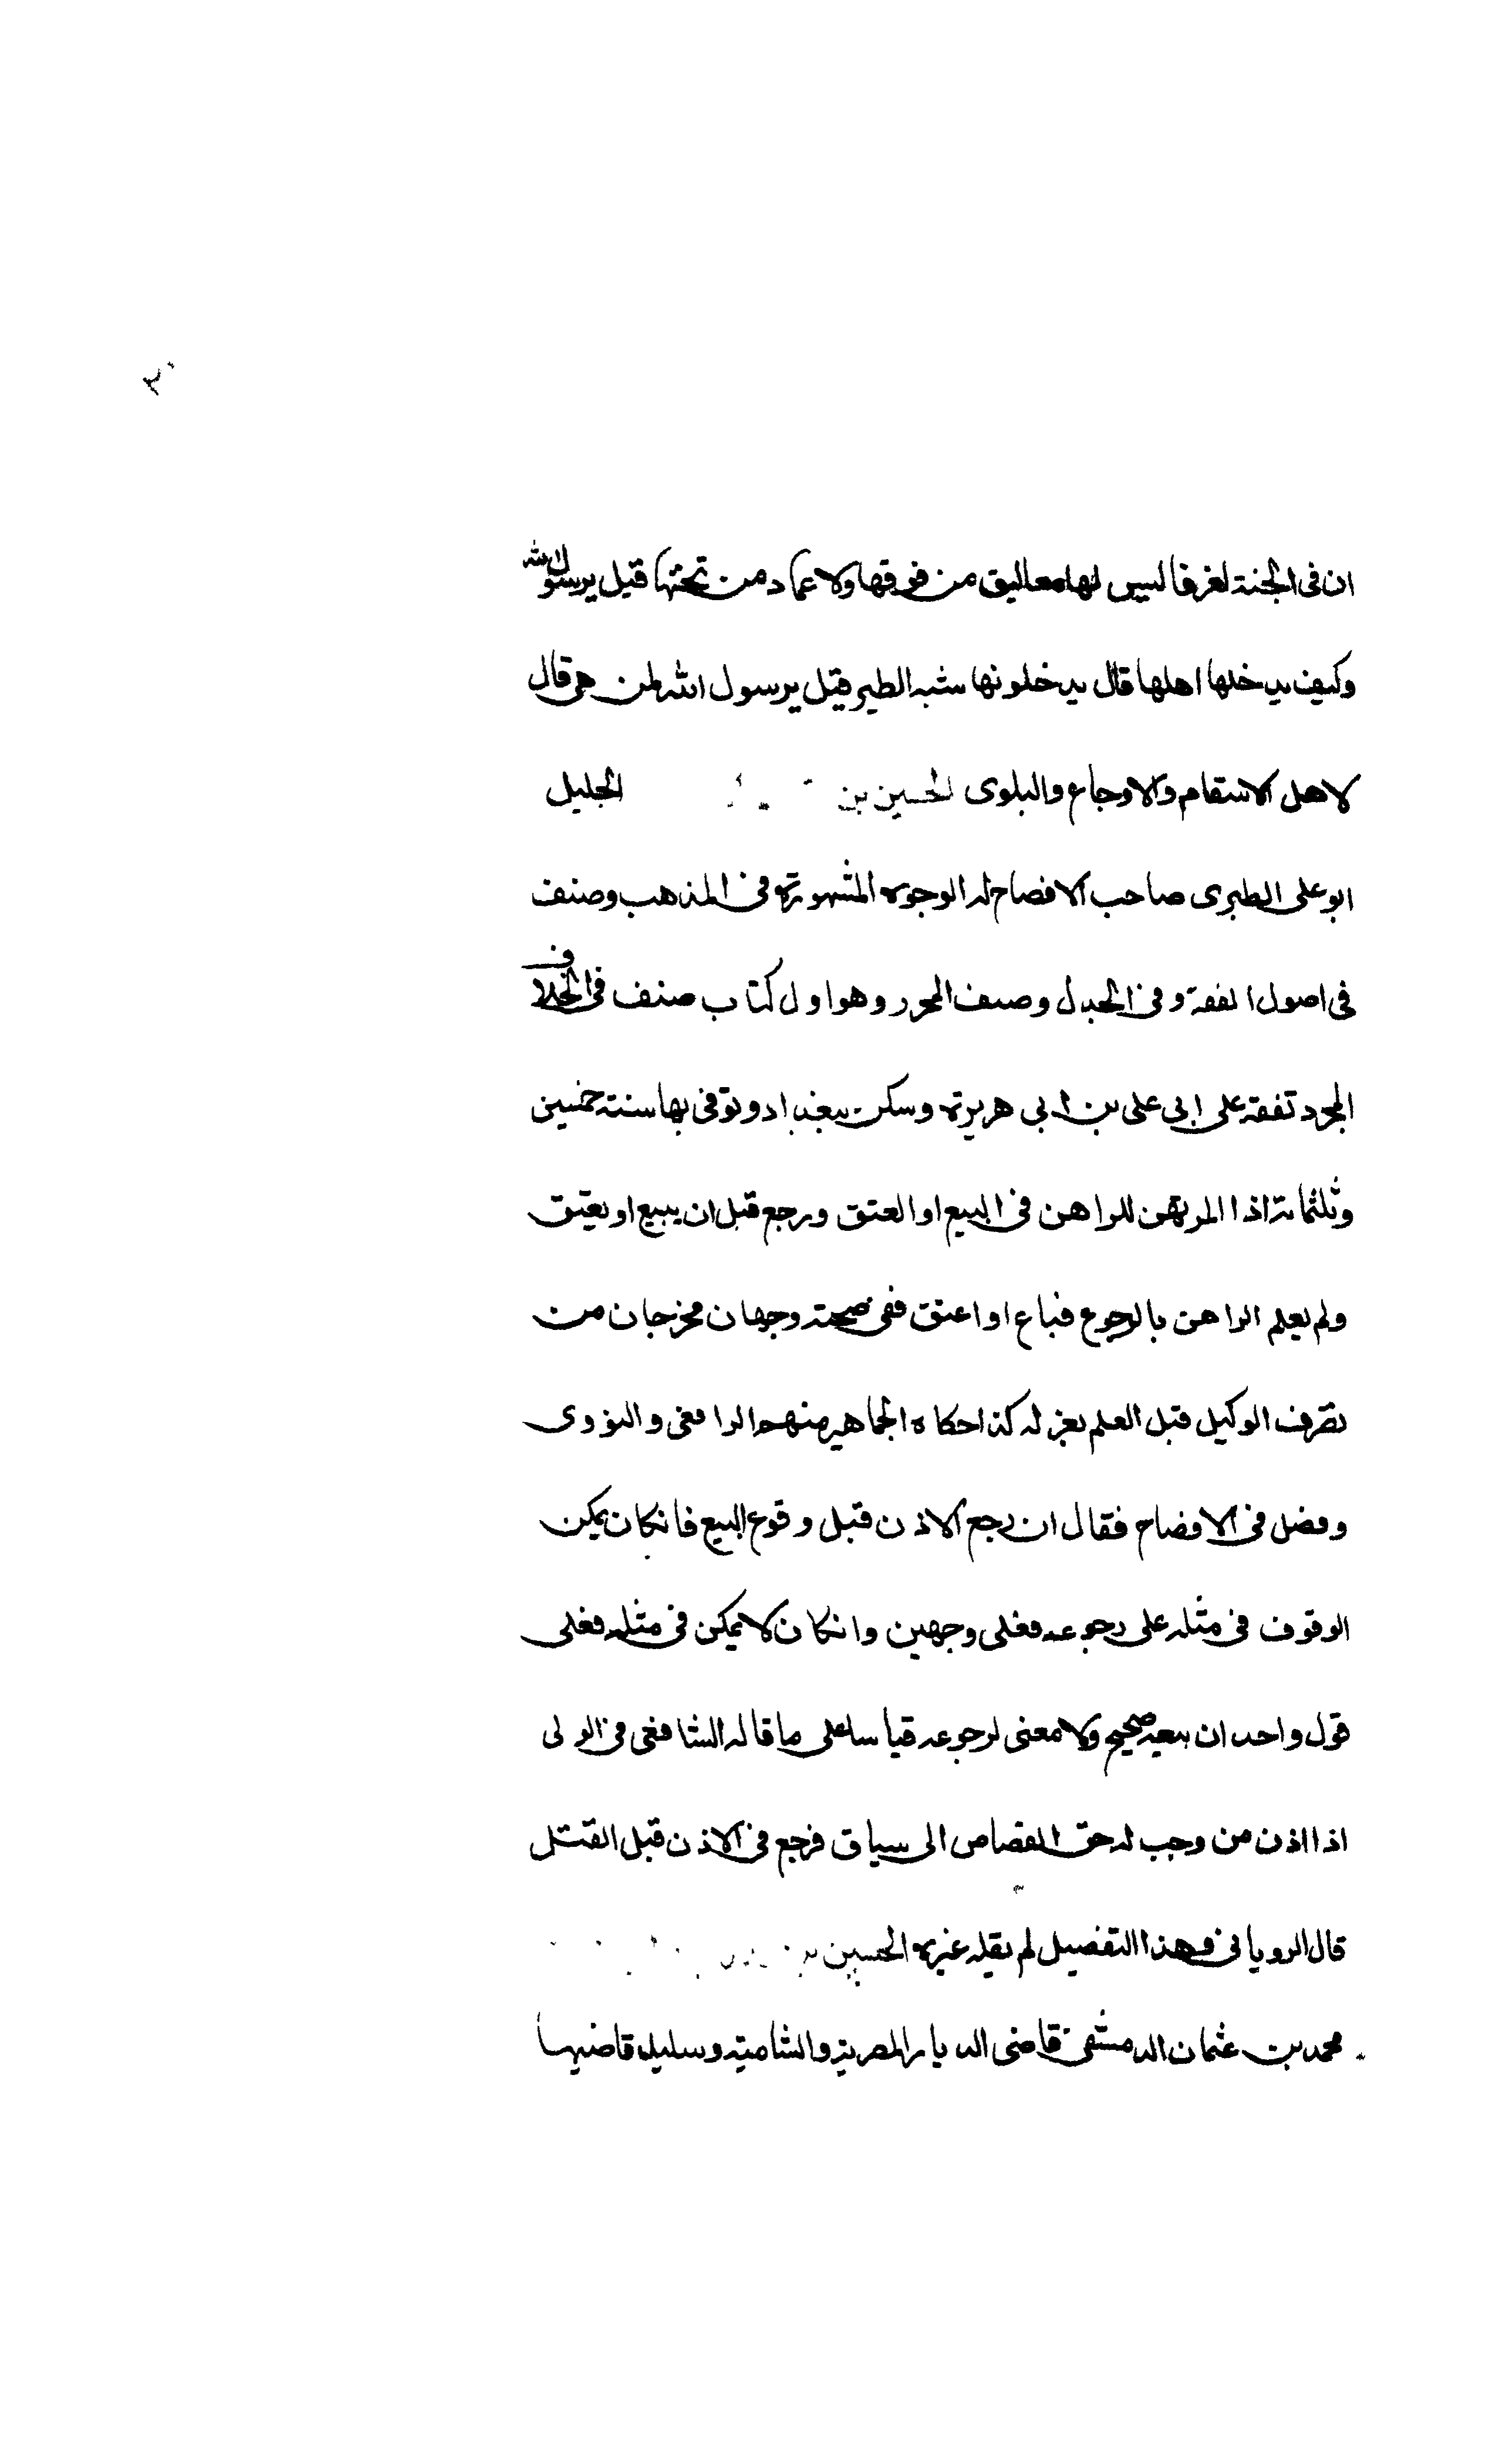 ان فى الجنة لغرفا ليس لها معاليق من فوقها ولا عماد من تحتها قيل يرسول الله
وكيف يدخلها اهلها قال يدخلونها شبه الطير قيل يرسول الله لمن هى قال
لاهل الاسقام والاوجاع والبلوى الحسين بن الجليل
ابو على الطبرى صاحب الافصاح له الوجوه المشهورة فى المذهب وصنف
فى اصول الفقه وفى الجدل وصنف المحرر وهو اول كتاب صنف فى الخلاف
المجرد تفقه على ابى على بن ابى هريرة وسكن ببغداد وتوفى بها سنة خمسين
وثلثمائة اذا المرتهن للراهن فى البيع او العتق ورجع قبل ان يبيع او يعتق
ولم يعلم الراهن بالرجوع فباع او اعتق ففى صحته وجهان مخرجان من
تصرف الوكيل قبل العلم بعزله كذا حكاه الجماهير منهم الرافعى والنووى
وفصل فى الافصاح فقال ان رجع الاذن قبل وقوع البيع فانكان يمكن
الوقوف فى مثله على رجوعه فعلى وجهين وانكان لا يمكن فى مثله فعلى
قول واحد ان بيعه صحيح ولا معنى لرجوعه قياسا على ما قاله الشافعى فى الولى
اذا اذن من وجب له حق القصاص الى سياف فرجع فى الاذن قبل القتل
قال الرويانى وهذا التفصيل لم يقله غيره الحسين بن
محمد بن عثمان الدمشقى قاضى الديار المصرية والشامية وسليل قاضيها